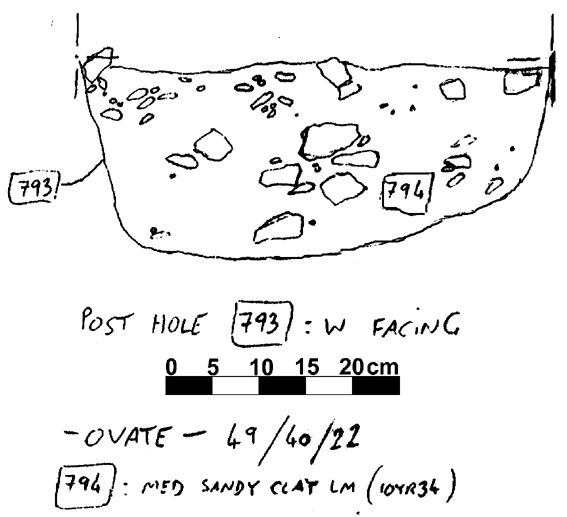 793
794
POST HOLE 793 : W FACING
0 5 10 15 20cm
- OVATE - 49/40/22
794 : MED SANDY CLAY LM (10YR34)